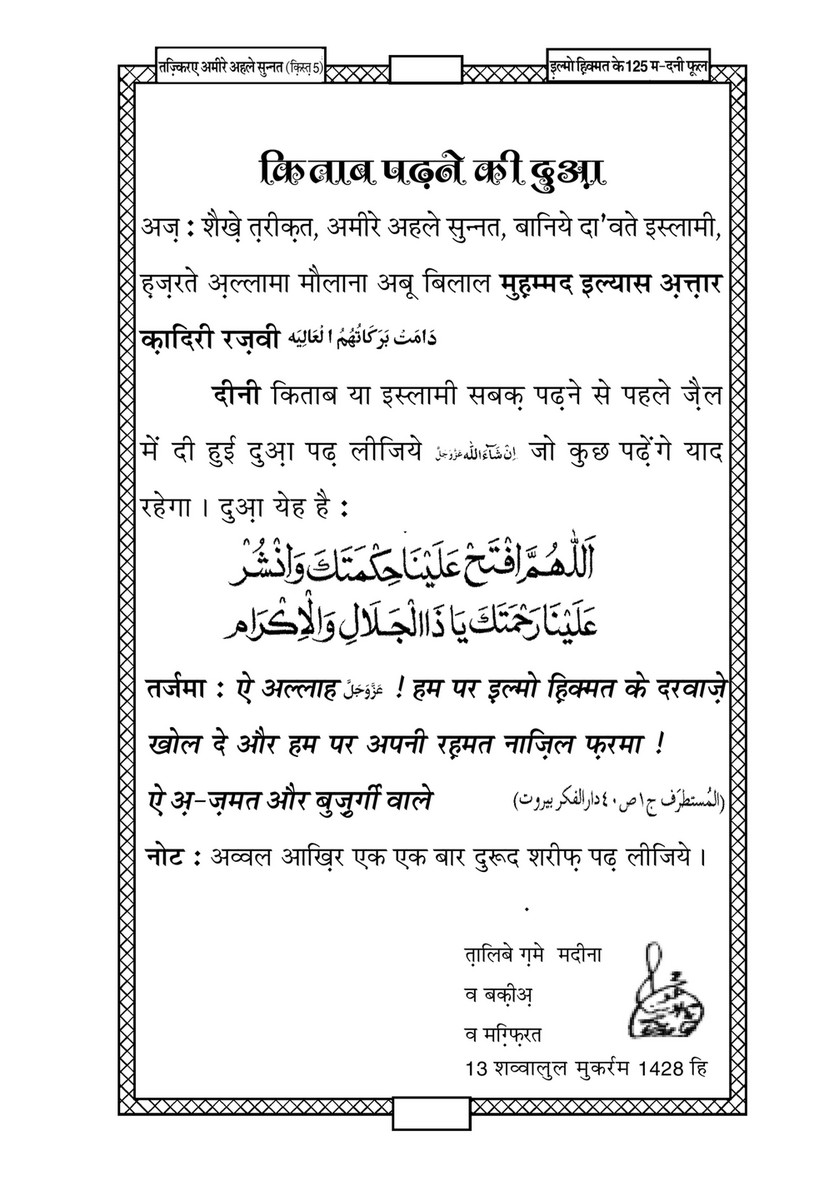 तज़्किरए अमीरे अहले सुन्नत (क़िस्त़ 5)
इ़ल्मो ह़िक्मत के 125 म-दनी फूल
किताब पढ़ने की दुआ़
अज़ : शैख़े त़रीक़त, अमीरे अहले सुन्नत, बानिये दा'वते इस्लामी,
ह़ज़रते अ़ल्लामा मौलाना अबू बिलाल मुह़म्मद इल्यास अ़त्त़ार
क़ादिरी रज़वी دَامَتْ بَرَكَاتُهُمُ الْعَالِيَه
दीनी किताब या इस्लामी सबक़ पढ़ने से पहले ज़ैल
में दी हुई दुआ़ पढ़ लीजिये اِنْ شَآءَ اللّٰه عَزَّوَجَلَّ जो कुछ पढ़ेंगे याद
रहेगा । दुआ़ येह है :
اَللّٰهُمَّ افْتَحْ عَلَيْنَا حِكْمَتَكَ وَانْشُرْ
عَلَيْنَا رَحْمَتَكَ يَا ذَا الْجَلَالِ وَالْاِكْرَام
तर्जमा : ऐ अल्लाह عَزَّوَجَلَّ ! हम पर इ़ल्मो ह़िक्मत के दरवाज़े
खोल दे और हम पर अपनी रह़मत नाज़िल फ़रमा !
ऐ अ़-ज़मत और बुज़ुर्गी वाले (المُستطرَف ج١ ص٤٠ دارالفكر بيروت)
नोट : अव्वल आख़िर एक एक बार दुरूद शरीफ़ पढ़ लीजिये ।
त़ालिबे ग़मे मदीना
व बक़ीअ़
व मग़्फ़िरत
13 शव्वालुल मुकर्रम 1428 हि